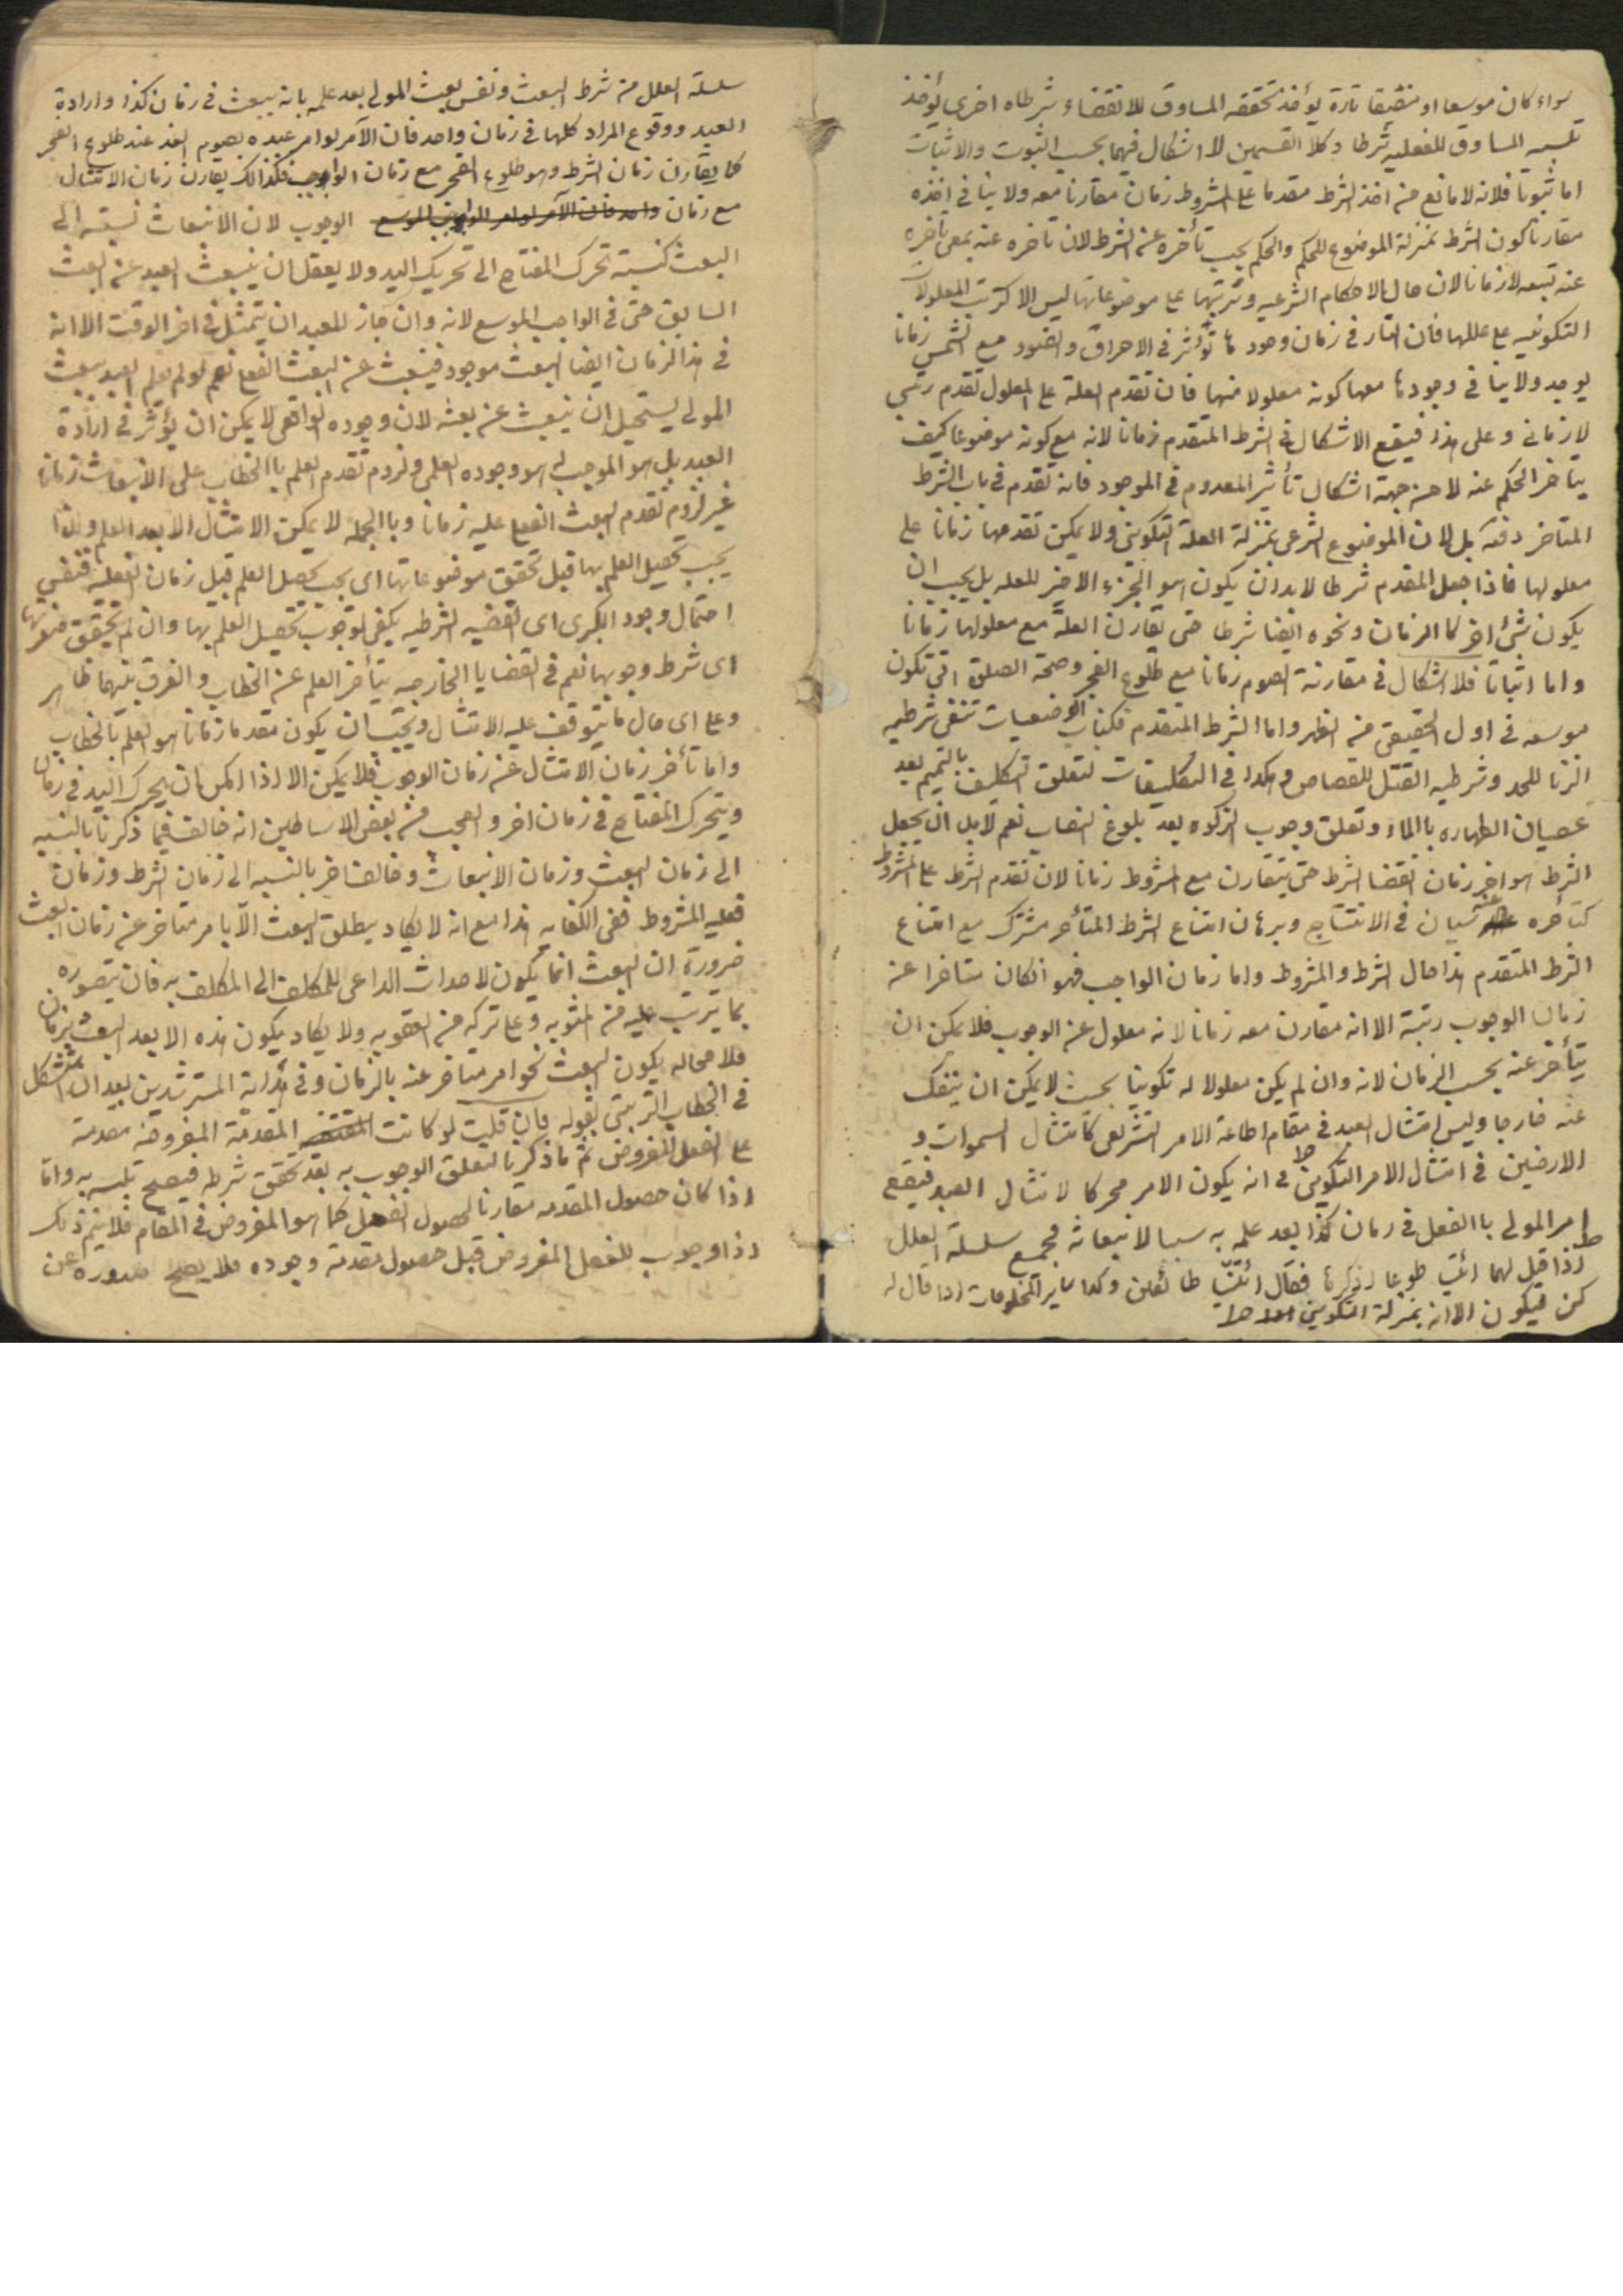 سواء كان موسعا او مضيقا تارة يؤخذ تحققه المساوق للانقضاء شرطا و اخرى يؤخذ
تلبسه المساوق للفعليه شرطا و كلا القسمين لا اشكال فيهما بحسب الثبوت والاثبات
اما ثبوتا فلانه لا مانع من اخذ الشرط مقدما على المشروط زمان مقارنا معه ولا ينافى اخذه
مقارنا كون الشرط بمنزلة الموضوع للحكم والحكم يجب تأخره عن الشرط لان تاخره عنه بمعنى تأخره
عنه رتبه لا زمانا لان حال الاحكام الشرعيه وترتبها على موضوعاتها ليس الا كترتب المعلولات
التكوينيه على عللها فان النار فى زمان وجودها تؤثر فى الاحراق والضوء مع الشمس زمانا
يوجد ولا ينافى وجودها معها كونه معلولا منها فان تقدم العلة على المعلول تقدم رتبى
لا زمانى وعلى هذا فيقع الاشكال فى الشرط المتقدم زمانا لانه مع كونه موضوعا كيف
يتأخر الحكم عنه لا من جهة اشكال تأثير المعدوم فى الموجود فانه تقدم فى باب الشرط
المتاخر دفعه بل لان الموضوع الشرعى بمنزلة العلة التكوينى ولا يمكن تقدمها زمانا على
معلولها فاذا جعل المقدم شرطا لابد ان يكون هو الجزء الاخير للعله بل يجب ان
يكون شئ اخر كالزمان ونحوه ايضا شرطا حتى تقارن العلة مع معلولها زمانا
واما اثباتا فلا اشكال فى مقارنة الصوم زمانا مع طلوع الفجر وصحة الصلوة التى تكون
موسعه فى اول الحقيقى من الظهر واما الشرط المتقدم فكباب الوضعيات تنفى شرطيه
الزنا للحد وشرطيه القتل للقصاص وهكذا فى التكليفات لتعلق التكليف بالتيمم بعد
عصيان الطهاره بالماء وتعلق وجوب الزكوه بعد بلوغ النصاب نعم لابد ان يجعل
الشرط هو اخر زمان انقضا الشرط حتى يتقارن مع المشروط زمانا لان تقدم الشرط على المشروط
كتأخره عنه سيان فى الانتتاج وبرهان امتناع الشرط المتأخر مشترك مع امتناع
الشرط المتقدم هذا حال الشرط والمشروط واما زمان الواجب فهو انكان متاخرا عن
زمان الوجوب رتبة الا انه مقارن معه زمانا لانه معلول عن الوجوب فلا يمكن ان
يتأخر عنه بحسب الزمان لانه وان لم يكن معلولا له تكوينا بحيث لا يمكن ان ينفك
عنه خارجا وليس امتثال العبد فى مقام اطاعة الامر التشريعى كامتثال السموات و
الارضين فى امتثال الامر التكوينى ط فى انه يكون الامر محركا لامتثال العبد فيقع
امر المولى بالفعل فى زمان كذا بعد علمه به سببا لانبعاثه فجميع سلسلة العلل
ط اذا قيل لهما ائتيا طوعا او كرها فقال اتينا طائعين وكذا ساير المخلوقات اذا قال له
كن فيكون الا انه بمنزلة التكوينى
سلسلة العلل من شرط البعث ونفس بعث المولى بعد علمه بانه يبعث فى زمان كذا وارادة
العبد ووقوع المراد كلها فى زمان واحد فان الآمر لو امر عبده بصوم الغد عند طلوع الفجر
كما يقارن زمان الشرط وهو طلوع الفجر مع زمان الوجوب فكذالك يقارن زمان الامتثال
مع زمان واحد فان الآمر لو امر الواجب الموسع الوجوب لان الانبعاث نسبته الى
البعث كنسبة تحرك المفتاح الى تحريك اليد ولا يعقل ان ينبعث العبد عن البعث
السابق حتى فى الواجب الموسع لانه وان جاز للعبد ان يتمثل فى اخر الوقت الا انه
فى هذا الزمان ايضا البعث موجود فينبعث عن البعث الفعلى نعم لو لم يعلم العبد ببعث
المولى يستحيل ان ينبعث عن بعثه لان وجوده الواقعى لا يمكن ان يؤثر فى ارادة
العبد بل هو الموجب له هو وجوده العلمى ولزوم تقدم العلم بالخطاب على الانبعاث زمانا
غير لزوم تقدم البعث الفعلى عليه زمانا وبالجملة لا يمكن الامتثال الا بعد العلم ولذا
يجب تحصيل العلم بها قبل تحقق موضوعاتها اى يجب تحصيل العلم قبل زمان الفعليه فنفس
احتمال وجود الكبرى اى القضيه الشرطيه يكفى لوجوب تحصيل العلم بها وان لم تحقق صغريها
اى شرط وجوبها نعم فى القضايا الخارجيه يتأخر العلم عن الخطاب والفرق بينهما ظاهر
وعلى اى حال ما يتوقف عليه الامتثال ويجب ان يكون مقدما زمانا هو العلم بالخطاب
واما تأخر زمان الامتثال عن زمان الوجوب فلا يمكن الا اذا امكن ان يحرك اليد فى زمان
ويتحرك المفتاح فى زمان اخر والعجب من بعض الاساطين انه خالف فيما ذكرنا بالنسبه
الى زمان البعث وزمان الانبعاث وخالف اخر بالنسبه الى زمان الشرط وزمان
فعليه المشروط ففى الكفايه هذا مع انه لا يكاد يطلق البعث الا بامر متاخر عن زمان البعث
ضرورة ان البعث انما يكون لاحداث الداعى للمكلف الى المكلف به فان يتصوره
بما يترتب عليه من المثوبه وعلى تركه من العقوبه ولا يكاد يكون هذه الا بعد البعث بزمان
فلا محاله يكون البعث نحو امر متاخر عنه بالزمان وفى هداية المسترشدين بعد ان استشكل
فى الخطاب الترتبى بقوله فان قلت لو كانت المقدمة المفروضه مقدمة
على الفعل المفروض تم ما ذكرنا لتعلق الوجوب به بعد تحقق شرطه فيصح تلبسه به واما
اذا كان حصول المقدمه مقارنا لحصول الفعل كما هو المفروض فى المقام فلا يتم ذلك
اذ لا وجوب للفعل المفروض قبل حصول مقدمة وجوده فلا يصح صدوره عن